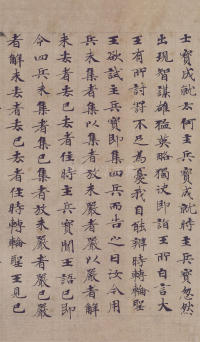 士寶成就云何主兵寶成就時主兵寶忽然
出現智謀雄猛英略獨決即詣王所白言大
王有所討罰不足為憂我自能辯時轉輪聖
王欲試主兵寶即集四兵而告之曰汝今用
兵未集者集以集者放未嚴者嚴以嚴者解
未去者去已去者住時主兵寶聞王語已即
令四兵未集者集已集者放未嚴者嚴已嚴
者解未去者去已去者住時轉輪聖王見已